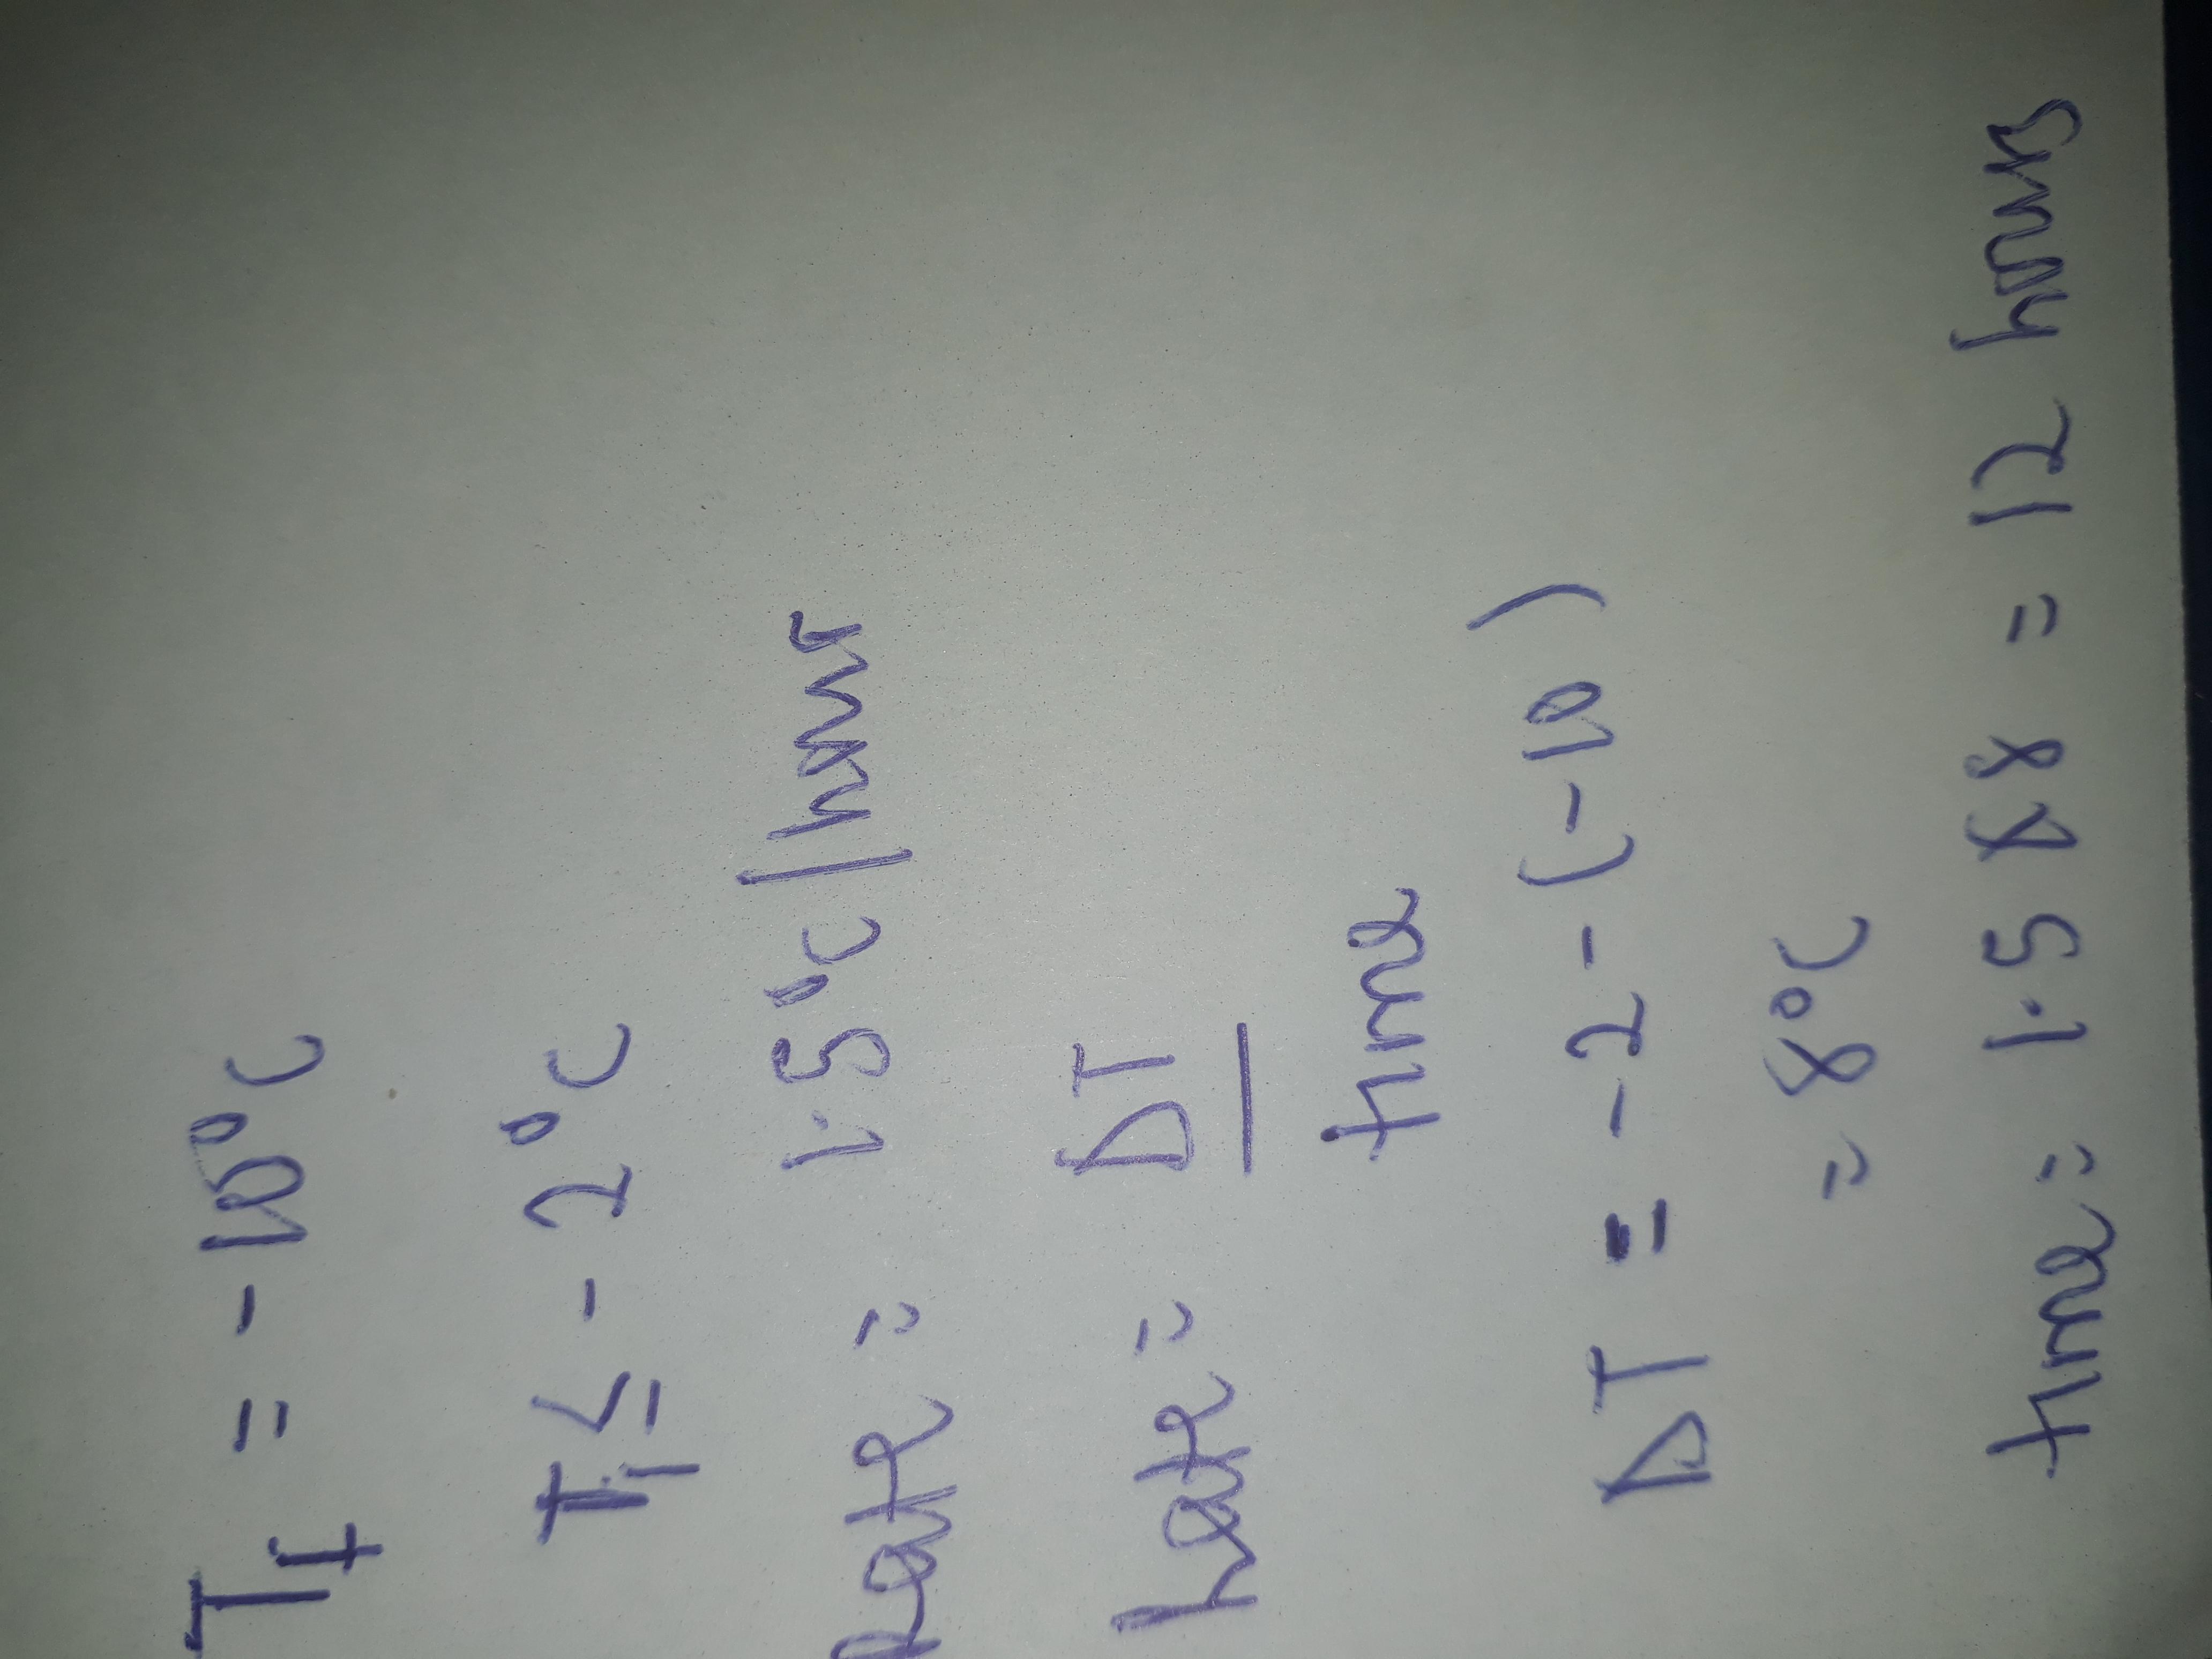 T_f = -10°C
T_i ≤ -2°C
Rate = 1.5°C/hour
Rate = ΔT
time
ΔT = -2-(-10)
= 8°C
time = 1.5 x 8 = 12 hours